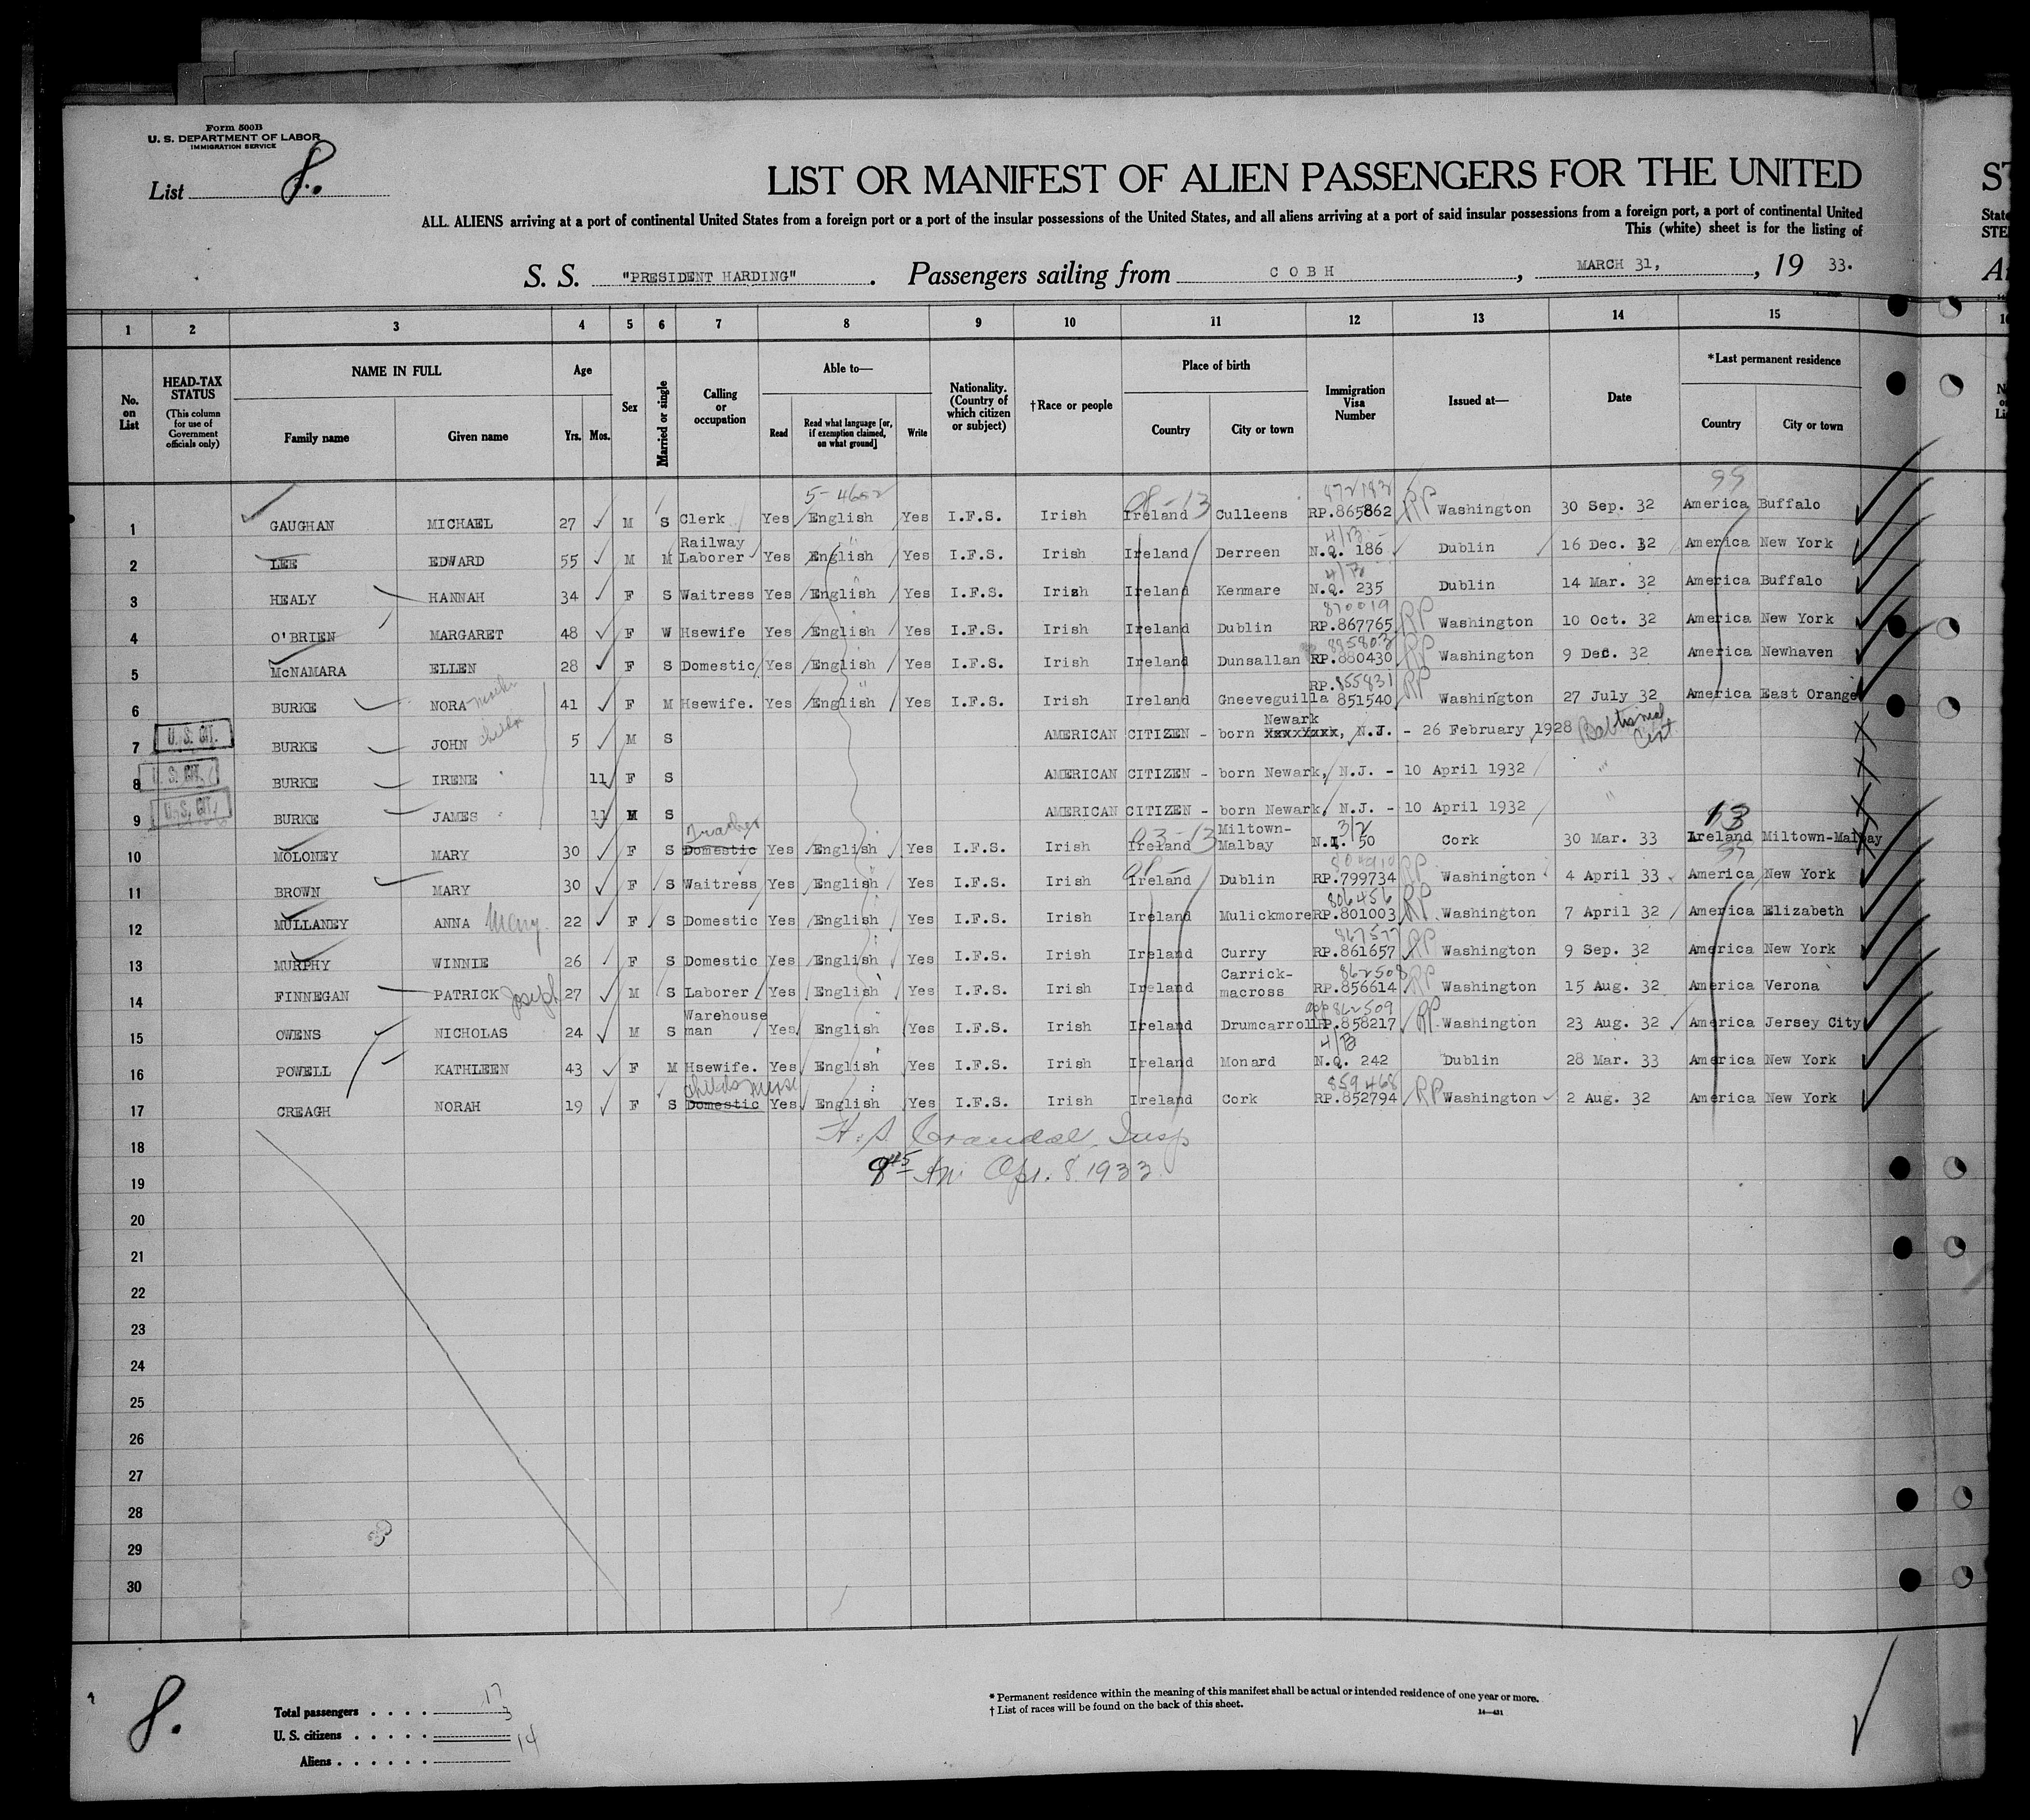 Form 500B
U. S. DEPARTMENT OF LABOR
IMMIGRATION SERVICE
List 8.
LIST OR MANIFEST OF ALIEN PASSENGERS FOR THE UNITED
ALL ALIENS arriving at a port of continental United States from a foreign port or a port of the insular possessions of the United States, and all aliens arriving at a port of said insular possessions from a foreign port, a port of continental United
This (white) sheet is for the listing of
S. S. "PRESIDENT HARDING". Passengers sailing from COBH, MARCH 31, 1933.
1 2 3 4 5 6 7 8 9 10 11 12 13 14 15
No. on List
HEAD-TAX STATUS (This column for use of Government officials only)
NAME IN FULL
Family name Given name
Age
Yrs. Mos.
Sex
Married or single
Calling or occupation
Able to—
Read Read what language [or, if exemption claimed, on what ground] Write
Nationality. (Country of which citizen or subject)
†Race or people
Place of birth
Country City or town
Immigration Visa Number
Issued at—
Date
*Last permanent residence
Country City or town
5-4652 08-13 872182 99
1 GAUGHAN MICHAEL 27 M S Clerk Yes English Yes I.F.S. Irish Ireland Culleens RP.865862 RP Washington 30 Sep. 32 America Buffalo
2 LEE EDWARD 55 M M Railway Laborer Yes English Yes I.F.S. Irish Ireland Derreen N.Q. 186 Dublin 16 Dec. 32 America New York
3 HEALY HANNAH 34 F S Waitress Yes English Yes I.F.S. Irish Ireland Kenmare N.Q. 235 Dublin 14 Mar. 32 America Buffalo
870019
4 O'BRIEN MARGARET 48 F W Hsewife Yes English Yes I.F.S. Irish Ireland Dublin RP.867765 RP Washington 10 Oct. 32 America New York
885803
5 McNAMARA ELLEN 28 F S Domestic Yes English Yes I.F.S. Irish Ireland Dunsallan RP.880430 RP Washington 9 Dec. 32 America Newhaven
RP.855831
6 BURKE NORA mother 41 F M Hsewife. Yes English Yes I.F.S. Irish Ireland Gneeveguilla 851540 RP Washington 27 July 32 America East Orange
7 U.S. CIT. BURKE JOHN children 5 M S AMERICAN CITIZEN - born Newark, N.J. - 26 February 1928 Babtismal Cert.
8 U.S. CIT. BURKE IRENE 11 F S AMERICAN CITIZEN - born Newark, N.J. - 10 April 1932 "
9 U.S. CIT. BURKE JAMES 11 M S AMERICAN CITIZEN - born Newark, N.J. - 10 April 1932 "
Teacher 03-13 3/2 13
10 MOLONEY MARY 30 F S Domestic Yes English Yes I.F.S. Irish Ireland Miltown-Malbay N.I. 50 Cork 30 Mar. 33 Ireland Miltown-Malbay
804910 99
11 BROWN MARY 30 F S Waitress Yes English Yes I.F.S. Irish Ireland Dublin RP.799734 RP Washington 4 April 33 America New York
806456
12 MULLANEY ANNA Mary. 22 F S Domestic Yes English Yes I.F.S. Irish Ireland Mulickmore RP.801003 RP Washington 7 April 32 America Elizabeth
867577
13 MURPHY WINNIE 26 F S Domestic Yes English Yes I.F.S. Irish Ireland Curry RP.861657 RP Washington 9 Sep. 32 America New York
862508
14 FINNEGAN PATRICK Joseph 27 M S Laborer Yes English Yes I.F.S. Irish Ireland Carrick-macross RP.856614 RP Washington 15 Aug. 32 America Verona
app 862509
15 OWENS NICHOLAS 24 M S Warehouse man Yes English Yes I.F.S. Irish Ireland Drumcarroll RP.858217 RP Washington 23 Aug. 32 America Jersey City
16 POWELL KATHLEEN 43 F M Hsewife. Yes English Yes I.F.S. Irish Ireland Monard N.Q. 242 Dublin 28 Mar. 33 America New York
Childs nurse 859468
17 CREAGH NORAH 19 F S Domestic Yes English Yes I.F.S. Irish Ireland Cork RP.852794 RP Washington 2 Aug. 32 America New York
18 H. S. Crandall Insp
19 9 45 Am Apr. 8. 1933
20
21
22
23
24
25
26
27
28
29
30
8.
Total passengers . . . . 17
U. S. citizens . . . . . 3
Aliens . . . . . . 14
* Permanent residence within the meaning of this manifest shall be actual or intended residence of one year or more.
† List of races will be found on the back of this sheet.
14—431